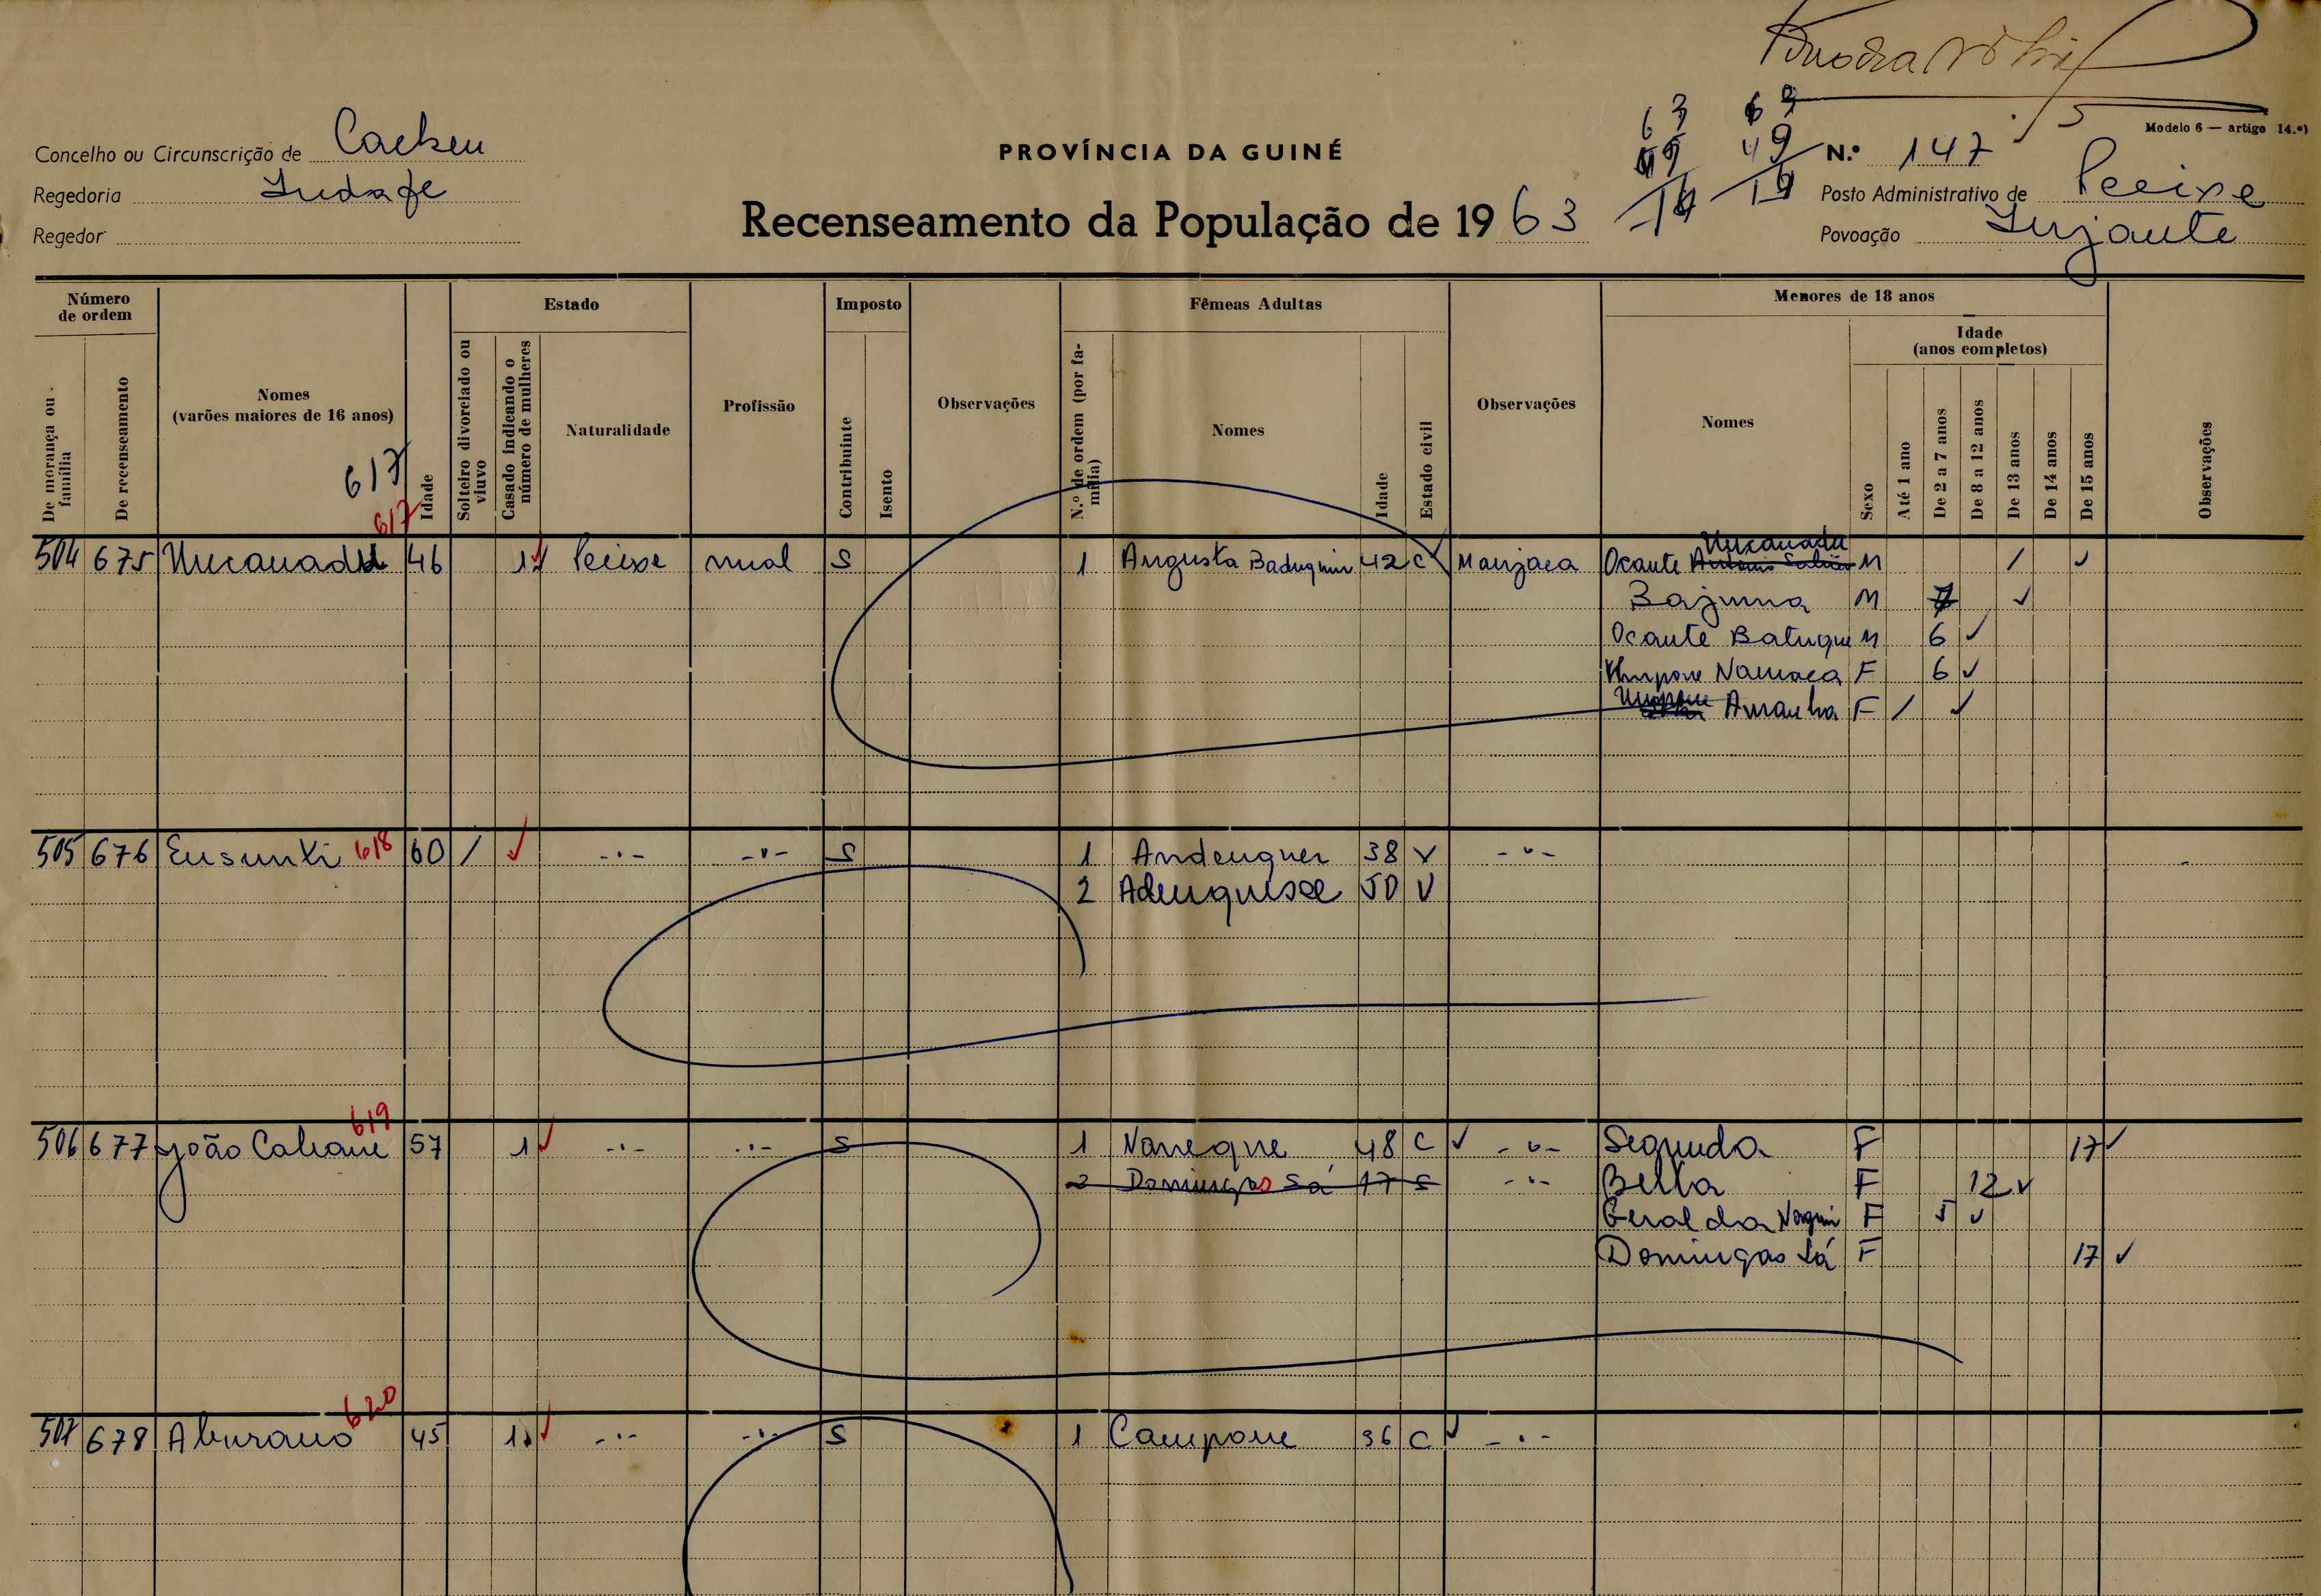 Modelo 6 — artigo 14.º)
Concelho ou Circunscrição de Cacheu
PROVÍNCIA DA GUINÉ
63 63
49 49
14 14
N.º 147
Regedoria
Posto Administrativo de Pecixe
Recenseamento da População de 1963
Regedor
Povoação
Número de ordem
De morança ou família
De recenseamento
Nomes
(varões maiores de 16 anos)
617
617
Idade
Estado
Solteiro divorciado ou viuvo
Casado indicando o número de mulheres
Naturalidade
Profissão
Imposto
Contribuinte
Isento
Observações
Fêmeas Adultas
N.º de ordem (por família)
Nomes
Idade
Estado civil
Observações
Menores de 18 anos
Nomes
Sexo
Idade
(anos completos)
Até 1 ano
De 2 a 7 anos
De 8 a 12 anos
De 13 anos
De 14 anos
De 15 anos
Observações
504 675 46 1 Pecixe rural S 1 Augusta Baduquin 42 C Manjaca Ocante M /
Bajunna M 7
Ocante Batuque M 6
Namaca F 6
Amanha F /
505 676 Ensunki 618 60 / -·- -·- S 1 Andenquer 38 V -·-
2 Adenquisse 50 V
506 677 João Cahane 619 57 1 -·- -·- S 1 Naneque 48 C -·- Segunda F 17
2 Domingas Sá 17 S -·- Bella F 12
Geralda F 5
Domingas Sá F 17
507 678 620 45 1 -·- -·- S 1 Campone 36 C -·-